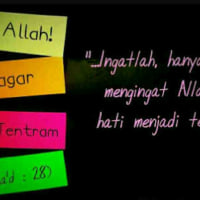 Allah!
agar
Tentram
a'd : 28)
"...Ingatlah, hanya
mengingat Alla
hati menjadi te